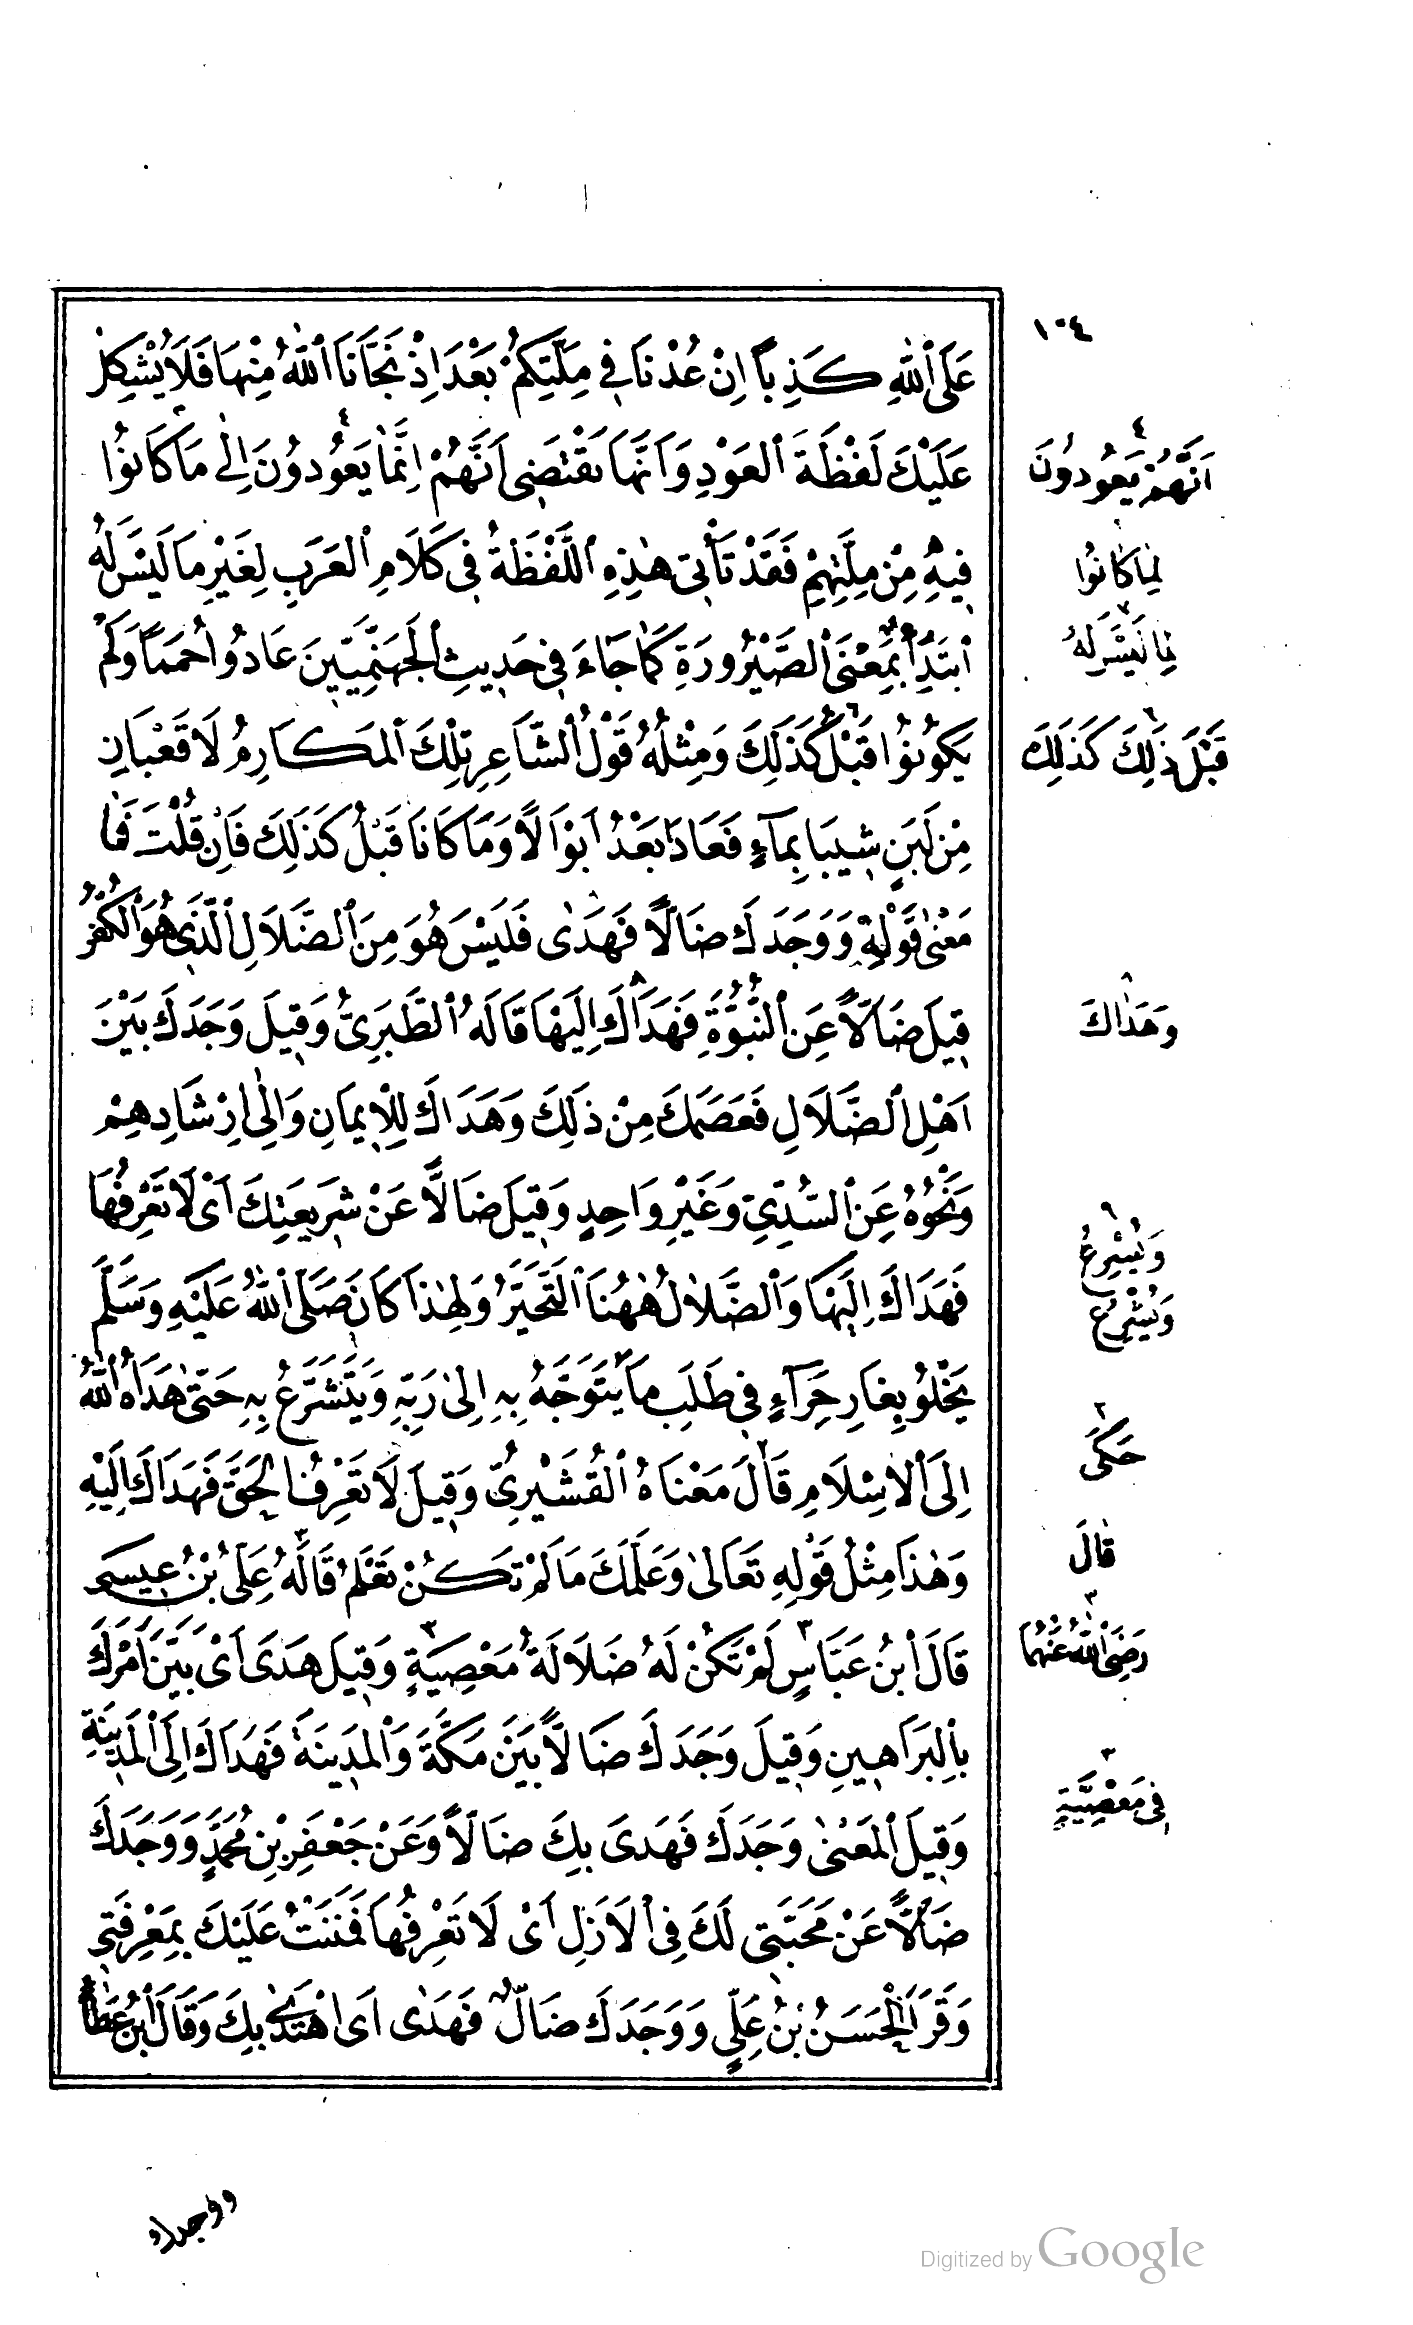 ١٠٤
عَلَى ٱللّٰهِ كَذِبًا اِنْ عُدْنَا فِى مِلَّتِكُمْ بَعْدَ اِذْ نَجَّانَا ٱللّٰهُ مِنْهَا فَلَا يُشْكِلْ
عَلَيْكَ لَفْظَةَ ٱلعَوْدِ وَاَنَّهَا تَقْتَضِى اَنَّهُمْ اِنَّمَا يَعُودُونَ اِلٰى مَا كَانُوا
فِيهِ مِنْ مِلَّتِهِمْ فَقَدْ تَأْتِى هٰذِهِ ٱللَّفْظَةُ فِى كَلَامِ ٱلعَرَبِ لِغَيْرِ مَا لَيْسَ لَهُ
ٱبْتِدَٱءٌ بِمَعْنَى ٱلصَّيْرُورَةِ كَمَا جَاءَ فِى حَدِيثِ ٱلْجَهَنَّمِيِّينَ عَادُوا حُمَمًا وَلَمْ
يَكُونُوا قَبْلُ كَذَلِكَ وَمِثْلُهُ قَوْلُ ٱلشَّاعِرِ تِلْكَ ٱلمَكَارِمُ لَا قَعْبَانِ
مِنْ لَبَنٍ شِيبَا بِمَآءٍ فَعَادَا بَعْدُ اَبْوَالًا وَمَا كَانَا قَبْلُ كَذَلِكَ فَاِنْ قُلْتَ فَمَا
مَعْنٰى قَوْلِهِ وَوَجَدَكَ ضَالًّا فَهَدٰى فَلَيْسَ هُوَ مِنَ ٱلضَّلَالِ ٱلَّذِى هُوَ ٱلْكُفْرُ
قِيلَ ضَالًّا عَنِ ٱلنُّبُوَّةِ فَهَدَاكَ اِلَيْهَا قَالَهُ ٱلطَّبَرِىُّ وَقِيلَ وَجَدَكَ بَيْنَ
اَهْلِ ٱلضَّلَالِ فَعَصَمَكَ مِنْ ذَلِكَ وَهَدَاكَ لِلْاِيمَانِ وَاِلٰى اِرْشَادِهِمْ
وَنَحْوُهُ عَنِ ٱلسُّدِّىِّ وَغَيْرِ وَاحِدٍ وَقِيلَ ضَالًّا عَنْ شَرِيعَتِكَ اَىْ لَا تَعْرِفُهَا
فَهَدَاكَ اِلَيْهَا وَٱلضَّلَالُ هٰهُنَا ٱلتَّحَيُّرُ وَلِهٰذَا كَانَ صَلَّى ٱللّٰهُ عَلَيْهِ وَسَلَّمَ
يَخْلُو بِغَارِ حِرَآءٍ فِى طَلَبِ مَا يَتَوَجَّهُ بِهِ اِلٰى رَبِّهِ وَيَتَشَرَّعُ بِهِ حَتّٰى هَدَاهُ ٱللّٰهُ
اِلَى ٱلْاِسْلَامِ قَالَ مَعْنَاهُ ٱلْقُشَيْرِىُّ وَقِيلَ لَا تَعْرِفُ ٱلْحَقَّ فَهَدَاكَ اِلَيْهِ
وَهٰذَا مِثْلُ قَوْلِهِ تَعَالٰى وَعَلَّمَكَ مَا لَمْ تَكُنْ تَعْلَمُ قَالَهُ عَلِىُّ بْنُ عِيسَى
قَالَ ٱبْنُ عَبَّاسٍ لَمْ تَكُنْ لَهُ ضَلَالَةُ مَعْصِيَةٍ وَقِيلَ هَدَى اَىْ بَيَّنَ اَمْرَكَ
بِٱلْبَرَاهِينِ وَقِيلَ وَجَدَكَ ضَالًّا بَيْنَ مَكَّةَ وَٱلْمَدِينَةِ فَهَدَاكَ اِلَى ٱلْمَدِينَةِ
وَقِيلَ ٱلْمَعْنٰى وَجَدَكَ فَهَدَى بِكَ ضَالًّا وَعَنْ جَعْفَرِ بْنِ مُحَمَّدٍ وَوَجَدَكَ
ضَالًّا عَنْ مَحَبَّتِى لَكَ فِى ٱلْاَزَلِ اَىْ لَا تَعْرِفُهَا فَمَنَنْتُ عَلَيْكَ بِمَعْرِفَتِى
وَقَرَأَ ٱلْحَسَنُ بْنُ عَلِىٍّ وَوَجَدَكَ ضَالٌّ فَهَدٰى اَىْ اهْتَدَى بِكَ وَقَالَ ٱبْنُ عَطَاءٍ
اَنَّهُمْ يَعُودُونَ
لِمَا كَانُوا
قَبْلَ ذٰلِكَ كَذَلِكَ
وَهَدَاكَ
وَيُشْرِعُ
وَيُشْرِعُ
حَكَى
قَالَ
رَضِىَ ٱللّٰهُ عَنْهُمَا
فِى مَعْصِيَةٍ
ووجدك
Digitized by Google